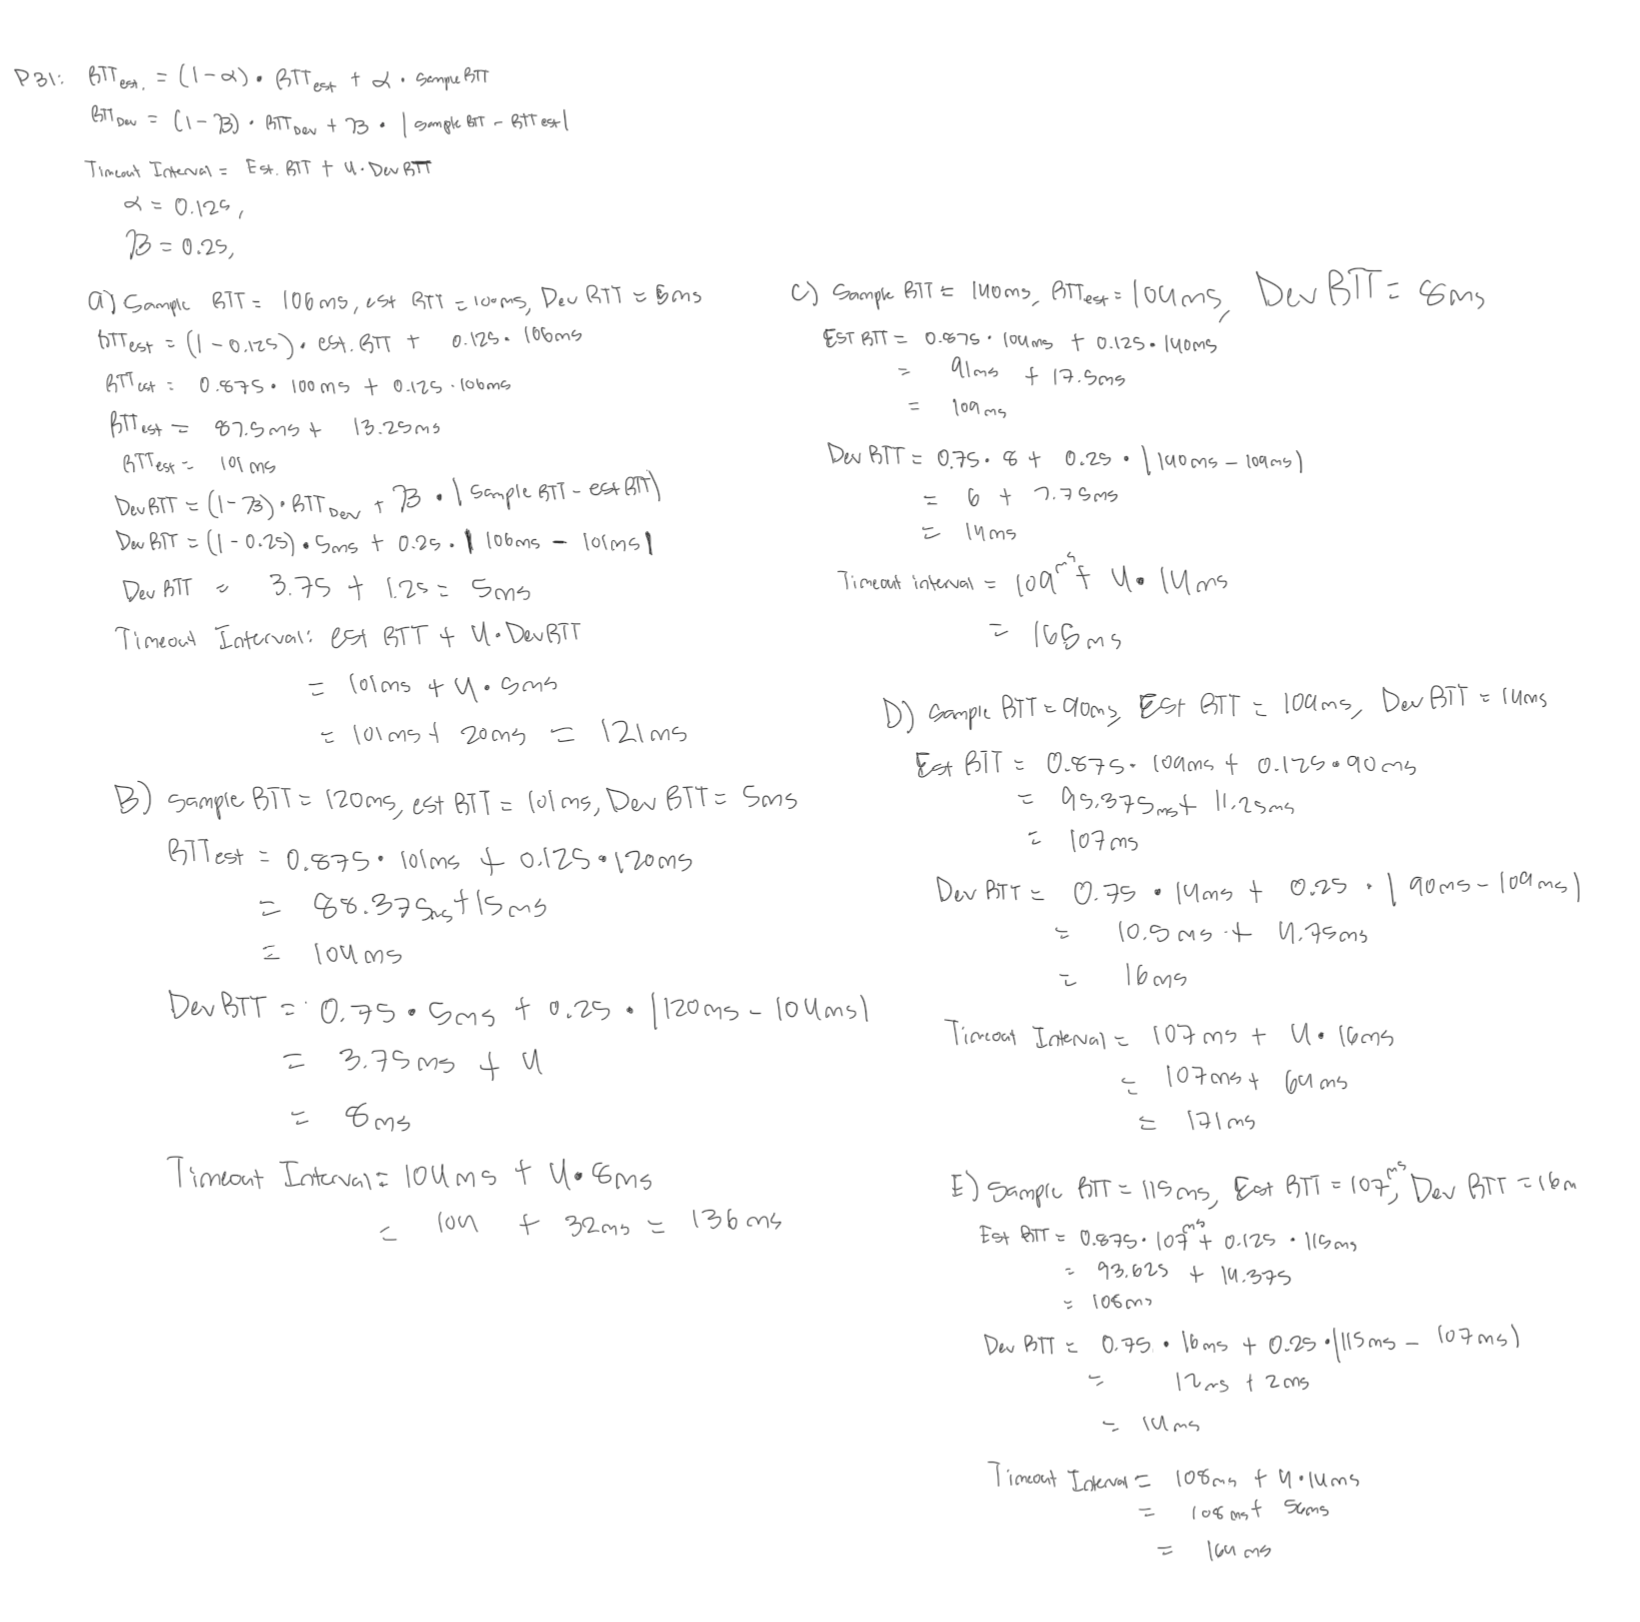 P31: RTT est. = (1-α) • RTT est + α • Sample RTT
RTT Dev = (1-β) • RTT Dev + β • | Sample RTT - RTT est |
Timeout Interval = Est. RTT + 4 • Dev RTT
α = 0.125,
β = 0.25,
a) Sample RTT = 106ms, est RTT = 100ms, Dev RTT = 5ms
RTT est = (1-0.125) • est. RTT + 0.125 • 106ms
RTT est = 0.875 • 100ms + 0.125 • 106ms
RTT est = 87.5ms + 13.25ms
RTT est = 101ms
Dev RTT = (1-β) • RTT Dev + β • | Sample RTT - est RTT |
Dev RTT = (1-0.25) • 5ms + 0.25 • | 106ms - 101ms |
Dev RTT = 3.75 + 1.25 = 5ms
Timeout Interval: est RTT + 4 • Dev RTT
= 101ms + 4 • 5ms
= 101ms + 20ms = 121ms
B) Sample RTT = 120ms, est RTT = 101ms, Dev RTT = 5ms
RTT est = 0.875 • 101ms + 0.125 • 120ms
= 88.375ms + 15ms
= 104ms
Dev RTT = 0.75 • 5ms + 0.25 • | 120ms - 104ms |
= 3.75ms + 4
= 8ms
Timeout Interval = 104ms + 4 • 8ms
= 104 + 32ms = 136ms
C) Sample RTT = 140ms, RTT est = 104ms, Dev RTT = 8ms
EST RTT = 0.875 • 104ms + 0.125 • 140ms
= 91ms + 17.5ms
= 109ms
Dev RTT = 0.75 • 8 + 0.25 • | 140ms - 109ms |
= 6 + 7.75ms
= 14ms
Timeout interval = 109ms + 4 • 14ms
= 165ms
D) Sample RTT = 90ms, Est RTT = 109ms, Dev RTT = 14ms
Est RTT = 0.875 • 109ms + 0.125 • 90ms
= 95.375ms + 11.25ms
= 107ms
Dev RTT = 0.75 • 14ms + 0.25 • | 90ms - 109ms |
= 10.5ms + 4.75ms
= 16ms
Timeout Interval = 107ms + 4 • 16ms
= 107ms + 64ms
= 171ms
E) Sample RTT = 115ms, Est RTT = 107ms, Dev RTT = 16m
Est RTT = 0.875 • 107ms + 0.125 • 115ms
= 93.625 + 14.375
= 108ms
Dev RTT = 0.75 • 16ms + 0.25 • | 115ms - 107ms |
= 12ms + 2ms
= 14ms
Timeout Interval = 108ms + 4 • 14ms
= 108ms + 56ms
= 164ms